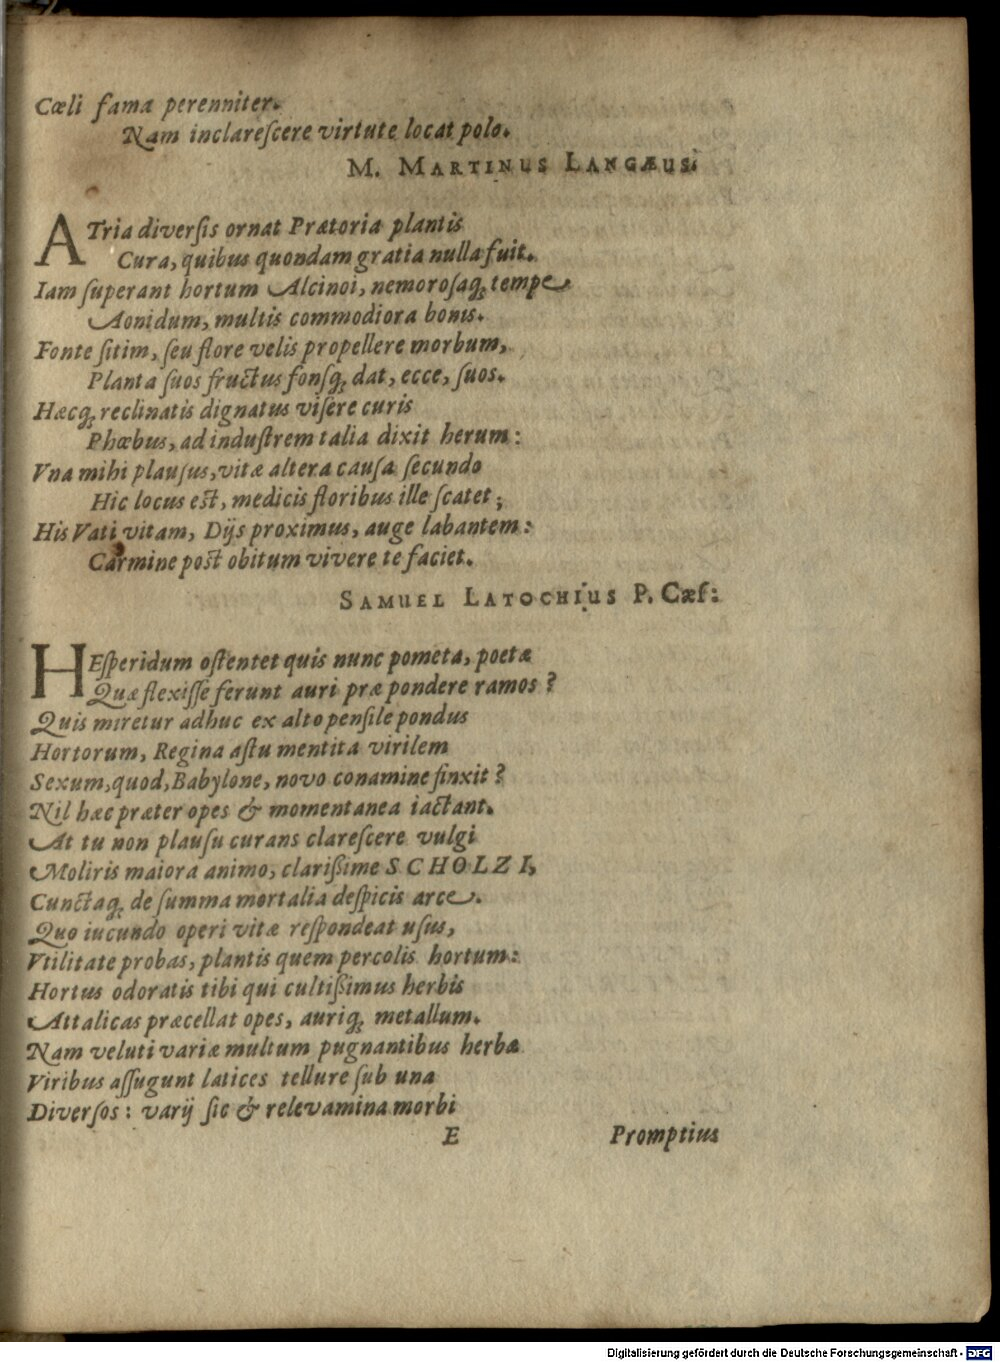 Cœli fama perenniter.
Nam inclareſcere virtute locat polo.
M. MARTINUS LANGÆUS.
ATria diverſis ornat Prætoria plantis
Cura, quibus quondam gratia nulla fuit.
Iam ſuperant hortum Alcinoi, nemoroſaq; tempe
Aonidum, multis commodiora bonis.
Fonte ſitim, ſeu flore velis propellere morbum,
Planta ſuos fructus fonſq; dat, ecce, ſuos.
Hæcq; reclinatis dignatus viſere curis
Phœbus, ad induſtrem talia dixit herum:
Vna mihi plauſus, vitæ altera cauſa ſecundo
Hic locus eſt, medicis floribus ille ſcatet;
His Vati vitam, Dijs proximus, auge labantem:
Carmine poſt obitum vivere te faciet.
SAMUEL LATOCHIUS P. Cæſ:
HEſperidum oſtentet quis nunc pometa, poetæ
Quæ flexiſſe ferunt auri præ pondere ramos?
Quis miretur adhuc ex alto penſile pondus
Hortorum, Regina aſtu mentita virilem
Sexum, quod, Babylone, novo conamine finxit?
Nil hæc præter opes & momentanea iactant.
At tu non plauſu curans clareſcere vulgi
Moliris maiora animo, clarißime SCHOLZI,
Cunctaq; de ſumma mortalia deſpicis arce.
Quo iucundo operi vitæ reſpondeat uſus,
Vtilitate probas, plantis quem percolis hortum:
Hortus odoratis tibi qui cultißimus herbis
Attalicas præcellat opes, auriq; metallum.
Nam veluti variæ multum pugnantibus herbæ
Viribus aſſugunt latices tellure ſub una
Diverſos: varij ſic & relevamina morbi
E Promptius
Digitalisierung gefördert durch die Deutsche Forschungsgemeinschaft - DFG